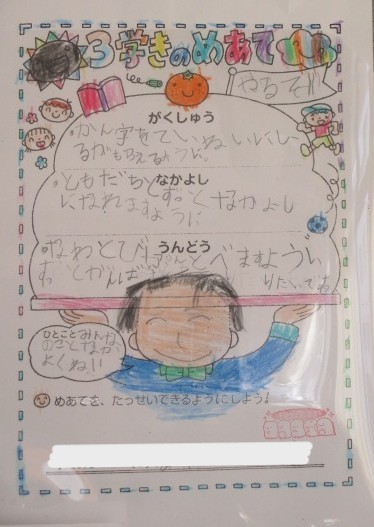 3学きのめあて
やるぞ!!
がくしゅう
かん字をていねいにし
るがもらえるように。
なかよし
ともだちとずっとなかよし
になれますように
うんどう
なわとび
とべますように
ずっとがんば
りたいです
ひとこと
みんな
のことなか
よくね!!
めあてを、たっせいできるようにしよう!